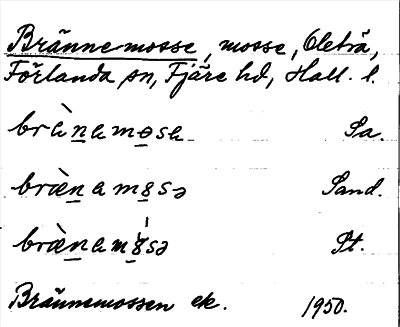 Brännemosse, mosse, Öleträ,
Förlanda sn, Fjäre hd, Hall. l.
brànamosa Sa.
bræ̀namosə Sand.
bræ̀namosə St.
Brännemossen ek. 1950.